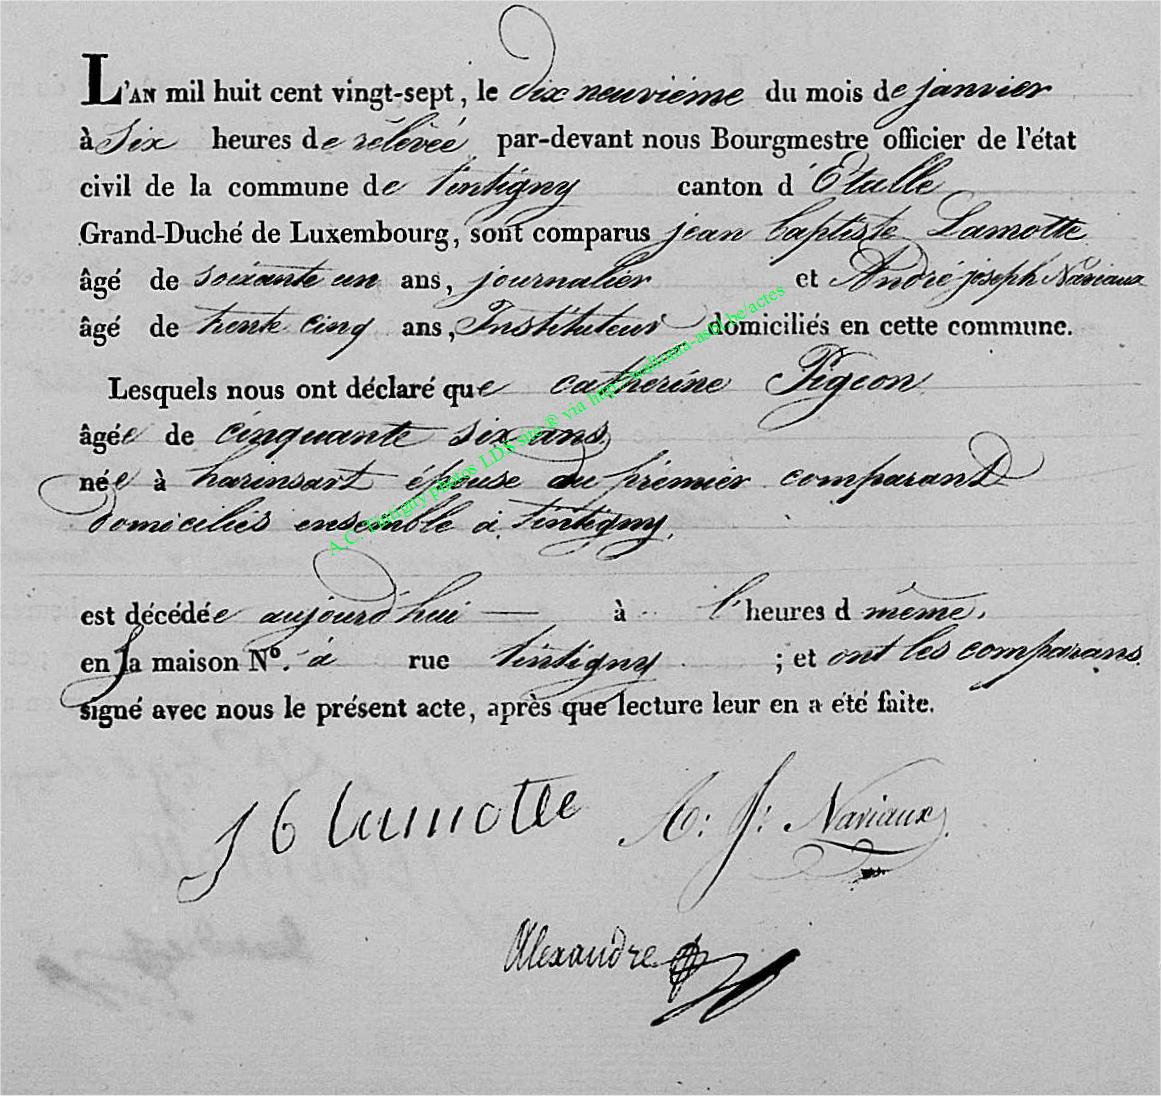 L'AN mil huit cent vingt-sept, le dix neuvième du mois de janvier
à six heures de rélévée par-devant nous Bourgmestre officier de l'état
civil de la commune de tintigny canton d'Étalle
Grand-Duché de Luxembourg, sont comparus jean baptiste Lamotte
âgé de soixante un ans, journalier et André joseph Naviaux
âgé de trente cinq ans, Instituteur domiciliés en cette commune.
Lesquels nous ont déclaré que catherine Pigeon
âgée de cinquante six ans
née à harinsart épouse du prémier comparant
domiciliés ensemble à tintigny.
est décédée aujourd'hui — à l'heures d même.
en la maison N.º à rue tintigny ; et ont les comparans
signé avec nous le présent acte, après que lecture leur en a été faite.
J b lamotte A: J: Naviaux
Alexandre
A.C. Tintigny photos LDS site ® via http://wallonia-asbl.be/actes